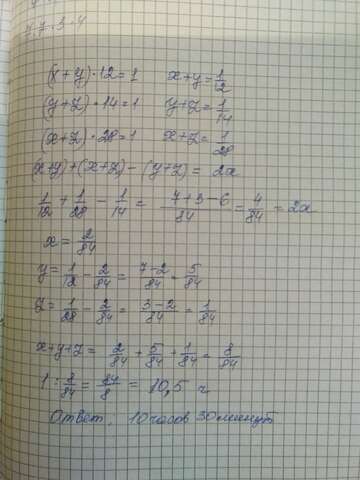 4.7.3.4
(x+y)·12=1 x+y=1/12
(y+z)·14=1 y+z=1/14
(x+z)·28=1 x+z=1/28
(x+y)+(x+z)-(y+z)= 2x
1/12 + 1/28 - 1/14 = 7+3-6/84 = 4/84 = 2x
x = 2/84
y = 1/12 - 2/84 = 7-2/84 = 5/84
z = 1/28 - 2/84 = 3-2/84 = 1/84
x+y+z = 2/84 + 5/84 + 1/84 = 8/84
1 : 8/84 = 84/8 = 10,5 ч
Ответ: 10 часов 30 минут